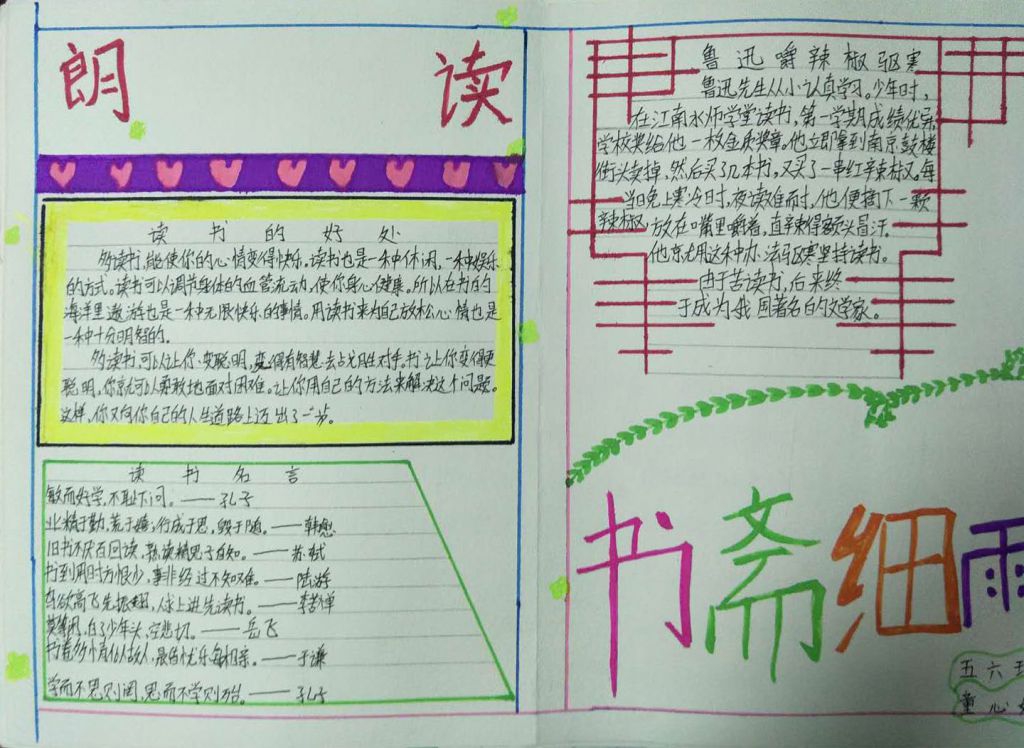 朗 读
读书的好处
多读书,能使你的心情变得快乐。读书也是一种休闲,一种娱乐
的方式。读书可以调节身体的血管流动,使你身心健康。所以在书的
海洋里遨游也是一种无限快乐的事情。用读书来为自己放松心情也是
一种十分明智的。
多读书,可以让你变聪明,变得有智慧去战胜对手。书让你变得更
聪明,你就可以勇敢地面对困难。让你用自己的方法来解决这个问题。
这样,你又向你自己的人生道路上迈出了一步。
读书名言
敏而好学,不耻下问。——孔子
业精于勤,荒于嬉;行成于思,毁于随。——韩愈
旧书不厌百回读,熟读精思子自知。——苏轼
书到用时方恨少,事非经过不知难。——陆游
鸟欲高飞先振翅,人求上进先读书。——李苦禅
莫等闲,白了少年头,空悲切。——岳飞
书卷多情似故人,晨昏忧乐每相亲。——于谦
学而不思则罔,思而不学则殆。——孔子
鲁迅嚼辣椒驱寒
鲁迅先生从小认真学习。少年时,
在江南水师学堂读书,第一学期成绩优异,
学校奖给他一枚金质奖章。他立即拿到南京鼓楼
街头卖掉,然后买了几本书,又买了一串红辣椒。每
当晚上寒冷时,夜读难耐,他便摘下一颗
辣椒,放在嘴里嚼着,直辣得额头冒汗。
他就用这种办法驱寒坚持读书。
由于苦读书,后来终
于成为我国著名的文学家。
书斋细雨
五六
童心